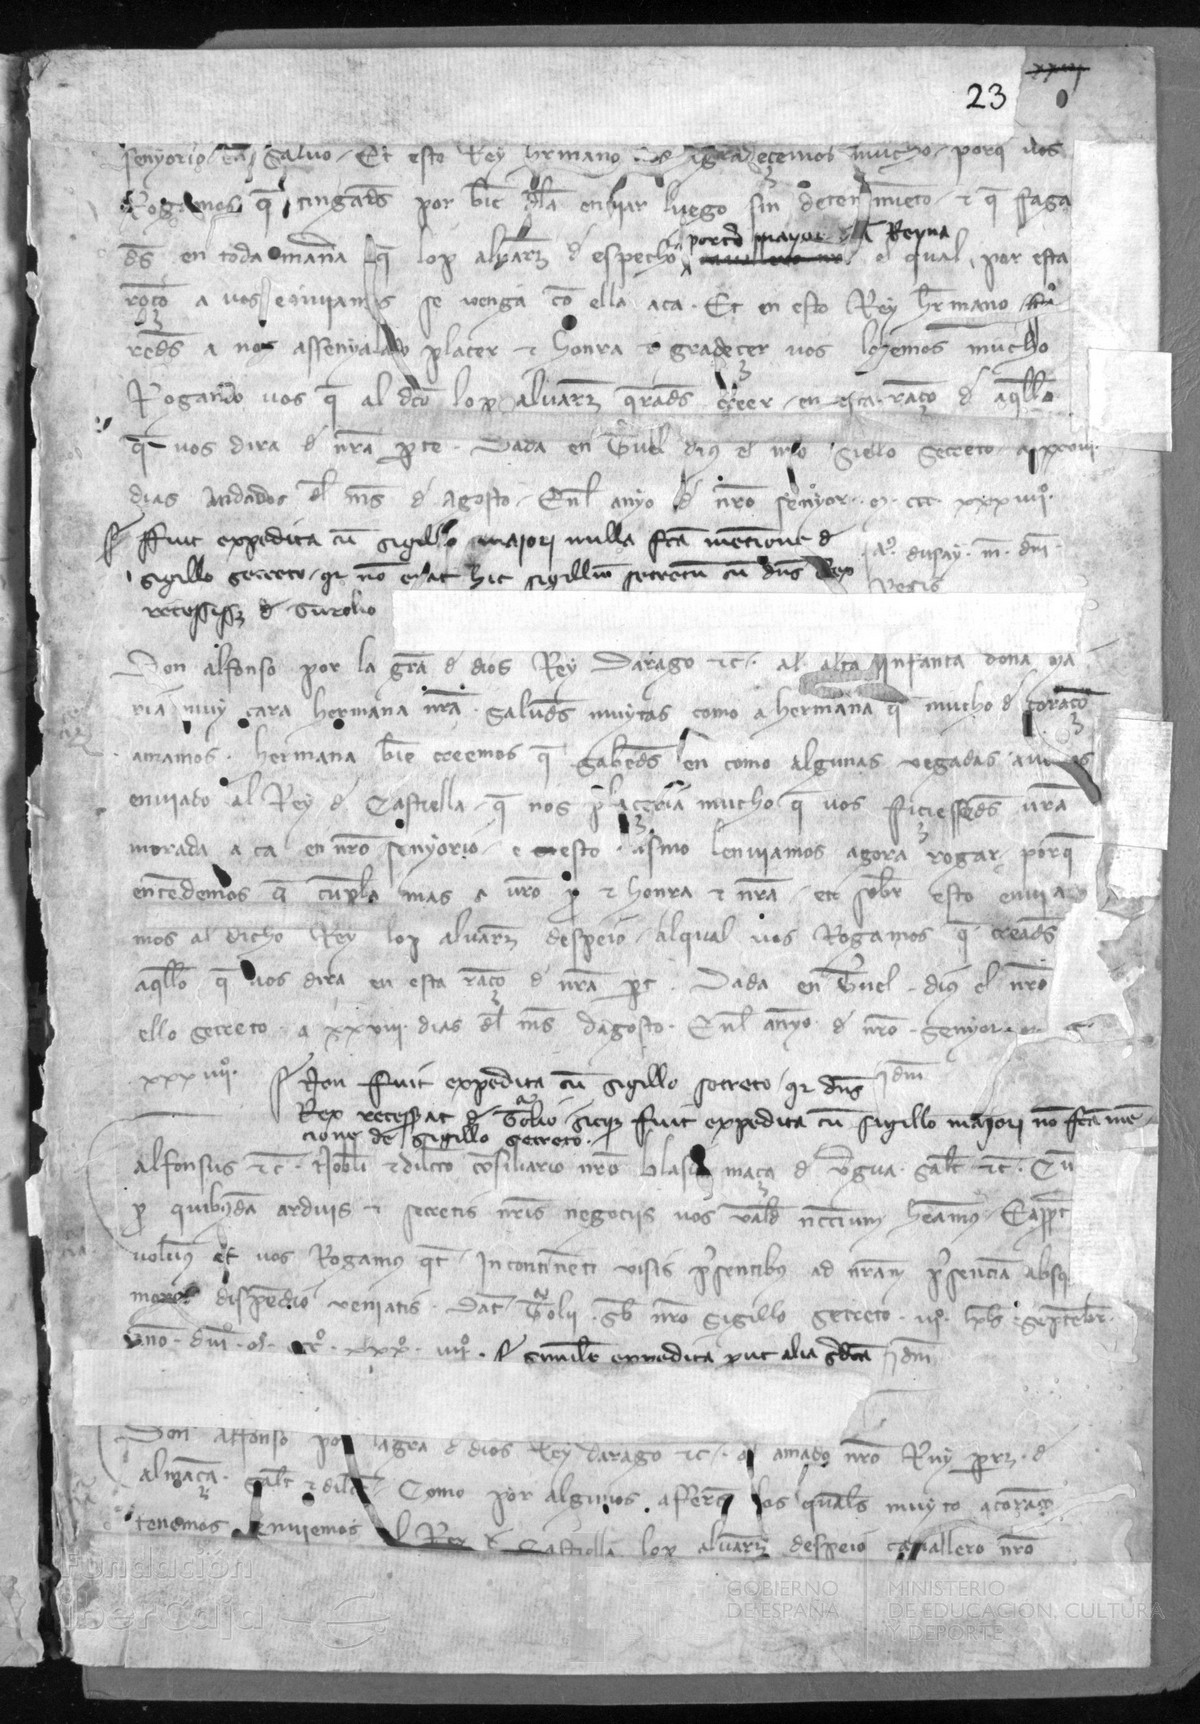 23
senyorio en salvo. Et esto Rey hermano vos agradeçemos mucho. porq̃ vos
Rogamos q̃ tingades por bie de la enviar luego sin detenimieto. ⁊ q̃ faga
des en toda mañã q̃ lop alvarez despecho portero mayor de la Reyna el qual por esta
raço a vos enviamos se venga co ella aca. Et en esto Rey hermano
redes a nos assenyalado placer ⁊ honra ⁊ gradeçer vos lo hemos mucho
Rogando vos q̃ al dco lop alvarez q̃rades creer en esta raço de aq̃llo
q̃ vos dira de nr̃a p̃te. Dada en Tuel dius el nro siello secreto a xxviii
dias andados del mes de Agosto. Enl anyo de nro senyor. m. ccc xxxiiiiº.
ffuit expedita cũ sigillo maiori nulla fc̃a mẽcione de
sigillo secreto, q̃r nõ erat hic sigillum secretũ cũ dñs Rex
recessiss; de Turolio
dm̃
Regis
Don alfonso por la gr̃a de dios Rey Darago etc. al alta Infanta dona Ma
ria muy cara hermana nr̃a. Saludes muytas como a hermana q̃ mucho de coraço
amamos. hermana bie creemos q̃ sabedes en como algunas vegadas avemos
enviado al Rey de Castiella q̃ nos plaçeria mucho q̃ vos ficiessedes vr̃a
morada aca en nr̃o senyorio. e esto ᷤmismo lenviamos agora rogar porq̃
entedemos q̃ cumpla mas a vr̃o p̃ ⁊ honra ⁊ nr̃a. et sobr esto envia
mos al dicho Rey lop alvarez despeio. Alqual vos Rogamos q̃ creades
aq̃llo q̃ vos dira en esta raço de nr̃a p̃t. Dada en Tuel dius el nr̃o
ello secreto a xxviii dias del mes dagosto. Enl anyo de nr̃o senyor
xxxiiiiº.
Non fuit expedita cũ sigillo secreto q̃r dñs
Idm̃
Rex recesserat de Turolio, sicq; fuit expedita cũ sigillo maiori nõ fc̃a men
cione de sigillo secreto.
Alfonsus etc. Nobili ⁊ dilecto cosiliario nr̃o blasio maça de v̾gua. Salt̃ etc. Cũ
p̃ quibusdã arduis ⁊ secretis nr̃is negociis vos vald̃ nccium heamus. Eapp̃t
volumus et vos Rogamus q̃t incontineti visis p̃sentibus ad nr̃am p̃senciã absq
mora dispendio veniatis. Dat̃ Turolii. sb̃ nr̃o Sigillo secreto. iiiº. kls septembr.
Anno. dm̃i. mº. cccº. xxxº. iiiiº. similr expedita put alia sdicta Idm̃
Don Alfonso por la gra de dios Rey darago etc. al amado nr̃o Ruy perez. de
almaçã. Salt̃ ⁊ dilect̃. Como por algunos afferes los quales muyto a coraço
tenemos enviemos al Rey de Castiella lop alvarez despeio cavallero nr̃o
Fundación
iberCaja
GOBIERNO
DE ESPAÑA
MINISTERIO
DE EDUCACIÓN, CULTURA
Y DEPORTE